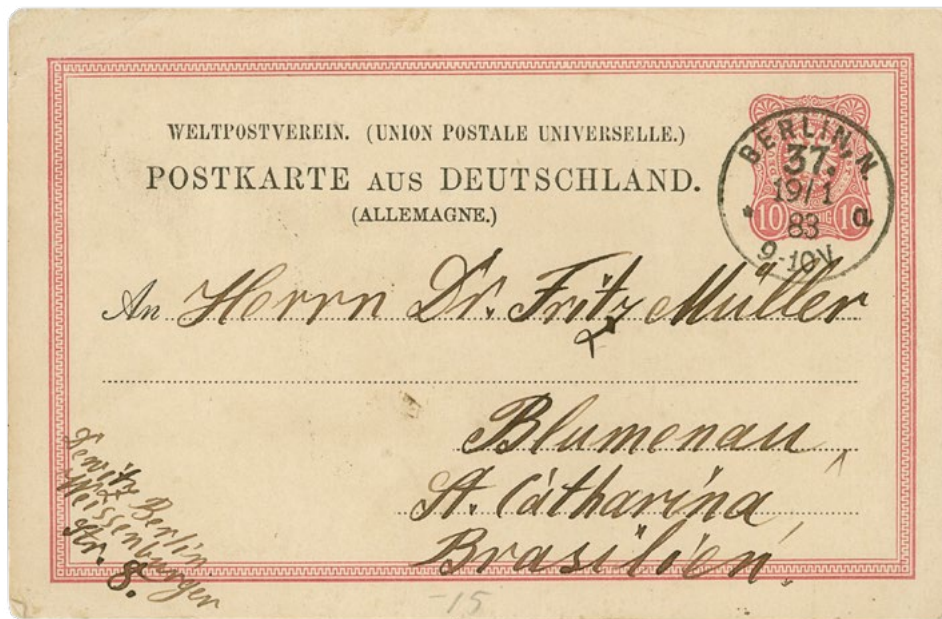 WELTPOSTVEREIN. (UNION POSTALE UNIVERSELLE.)
POSTKARTE AUS DEUTSCHLAND.
(ALLEMAGNE.)
BERLIN, N.
37.
19/1
83
9-10V.
* a
10 10
An Herrn Dr. Fritz Müller
Blumenau,
St. Catharina,
Brasilien.
Dewitz Berlin
Weissenburger
Str. 8.
-15